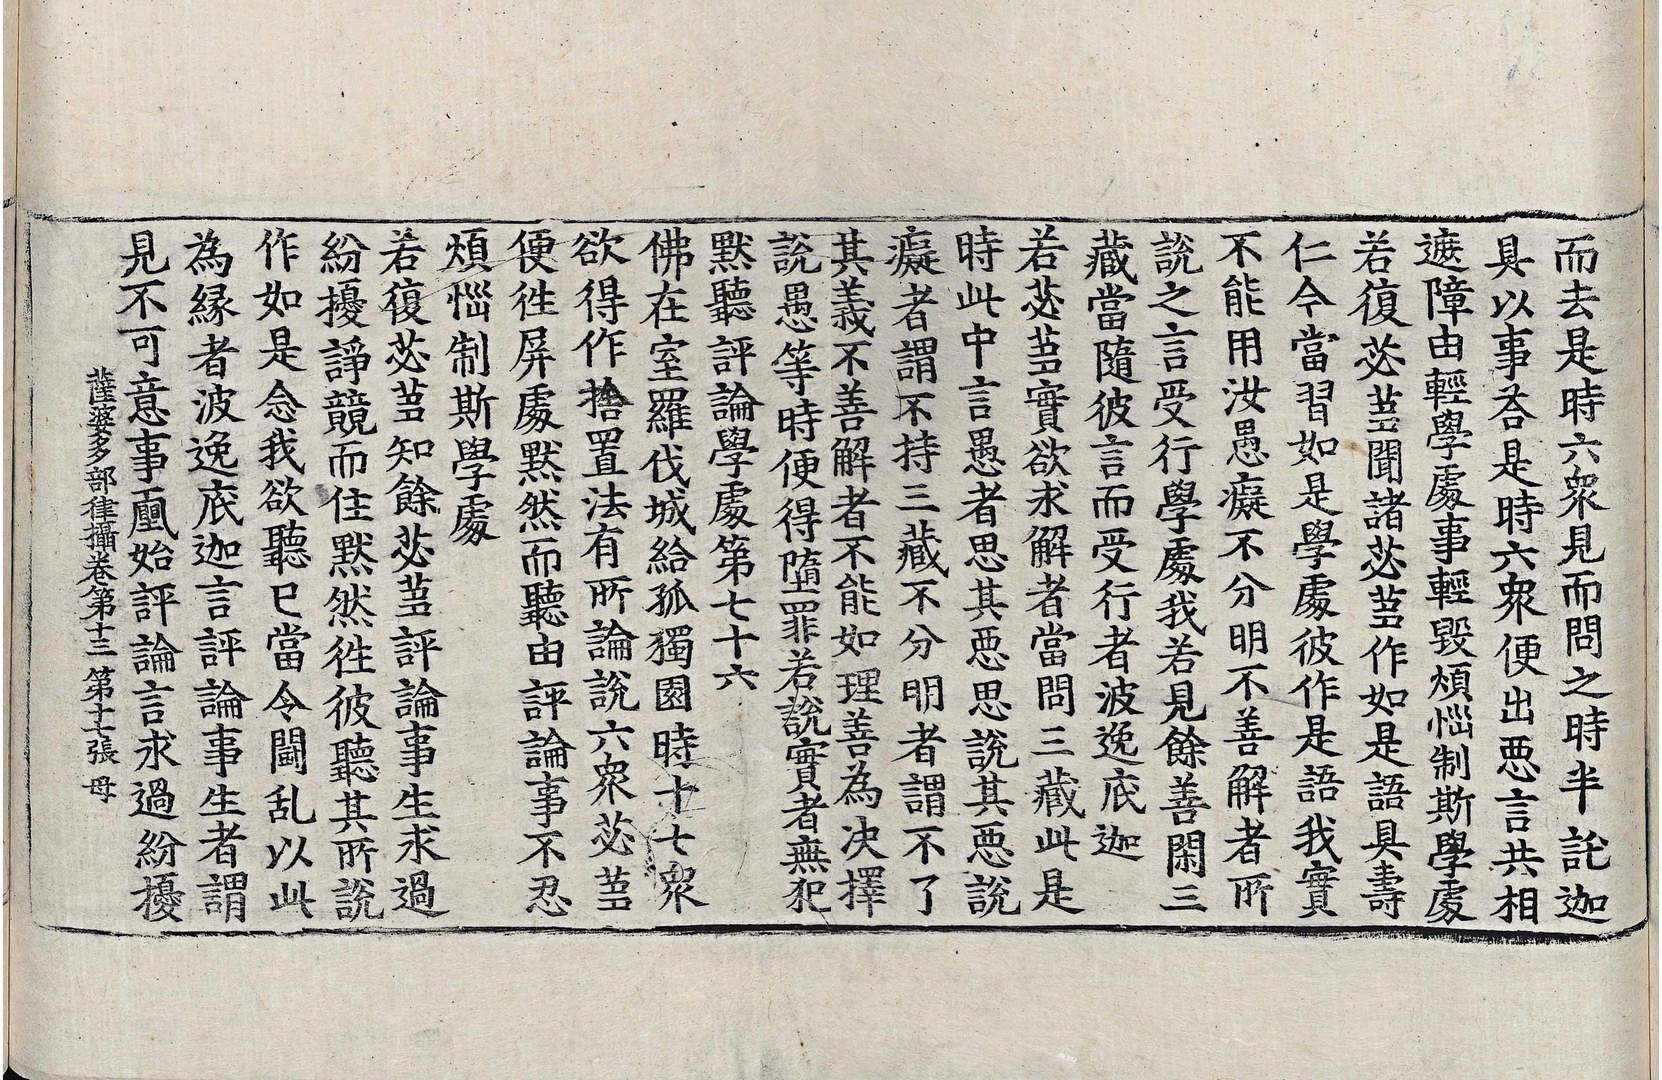 而去是時六衆見而問之時半託迦
具以事荅是時六衆便出惡言共相
遮障由輕學處事輕毀煩惱制斯學處
若復苾芻聞諸苾芻作如是語具壽
仁今當習如是學處彼作是語我實
不能用汝愚癡不分明不善解者所
說之言受行學處我若見餘善閑三
藏當隨彼言而受行者波逸底迦
若苾芻實欲求解者當問三藏此是
時此中言愚者思其惡思說其惡說
癡者謂不持三藏不分明者謂不了
其義不善解者不能如理善為決擇
說愚等時便得墮罪若說實者無犯
默聽評論學處第七十六
佛在室羅伐城給孤獨園時十七衆
欲得作捨置法有所論說六衆苾芻
便徃屏處默然而聽由評論事不忍
煩惱制斯學處
若復苾芻知餘苾芻評論事生求過
紛擾諍競而住默然徃彼聽其所說
作如是念我欲聽已當令鬪乱以此
為緣者波逸底迦言評論事生者謂
見不可意事𠙖始評論言求過紛擾
薩婆多部律攝卷第十三 第十七張 母